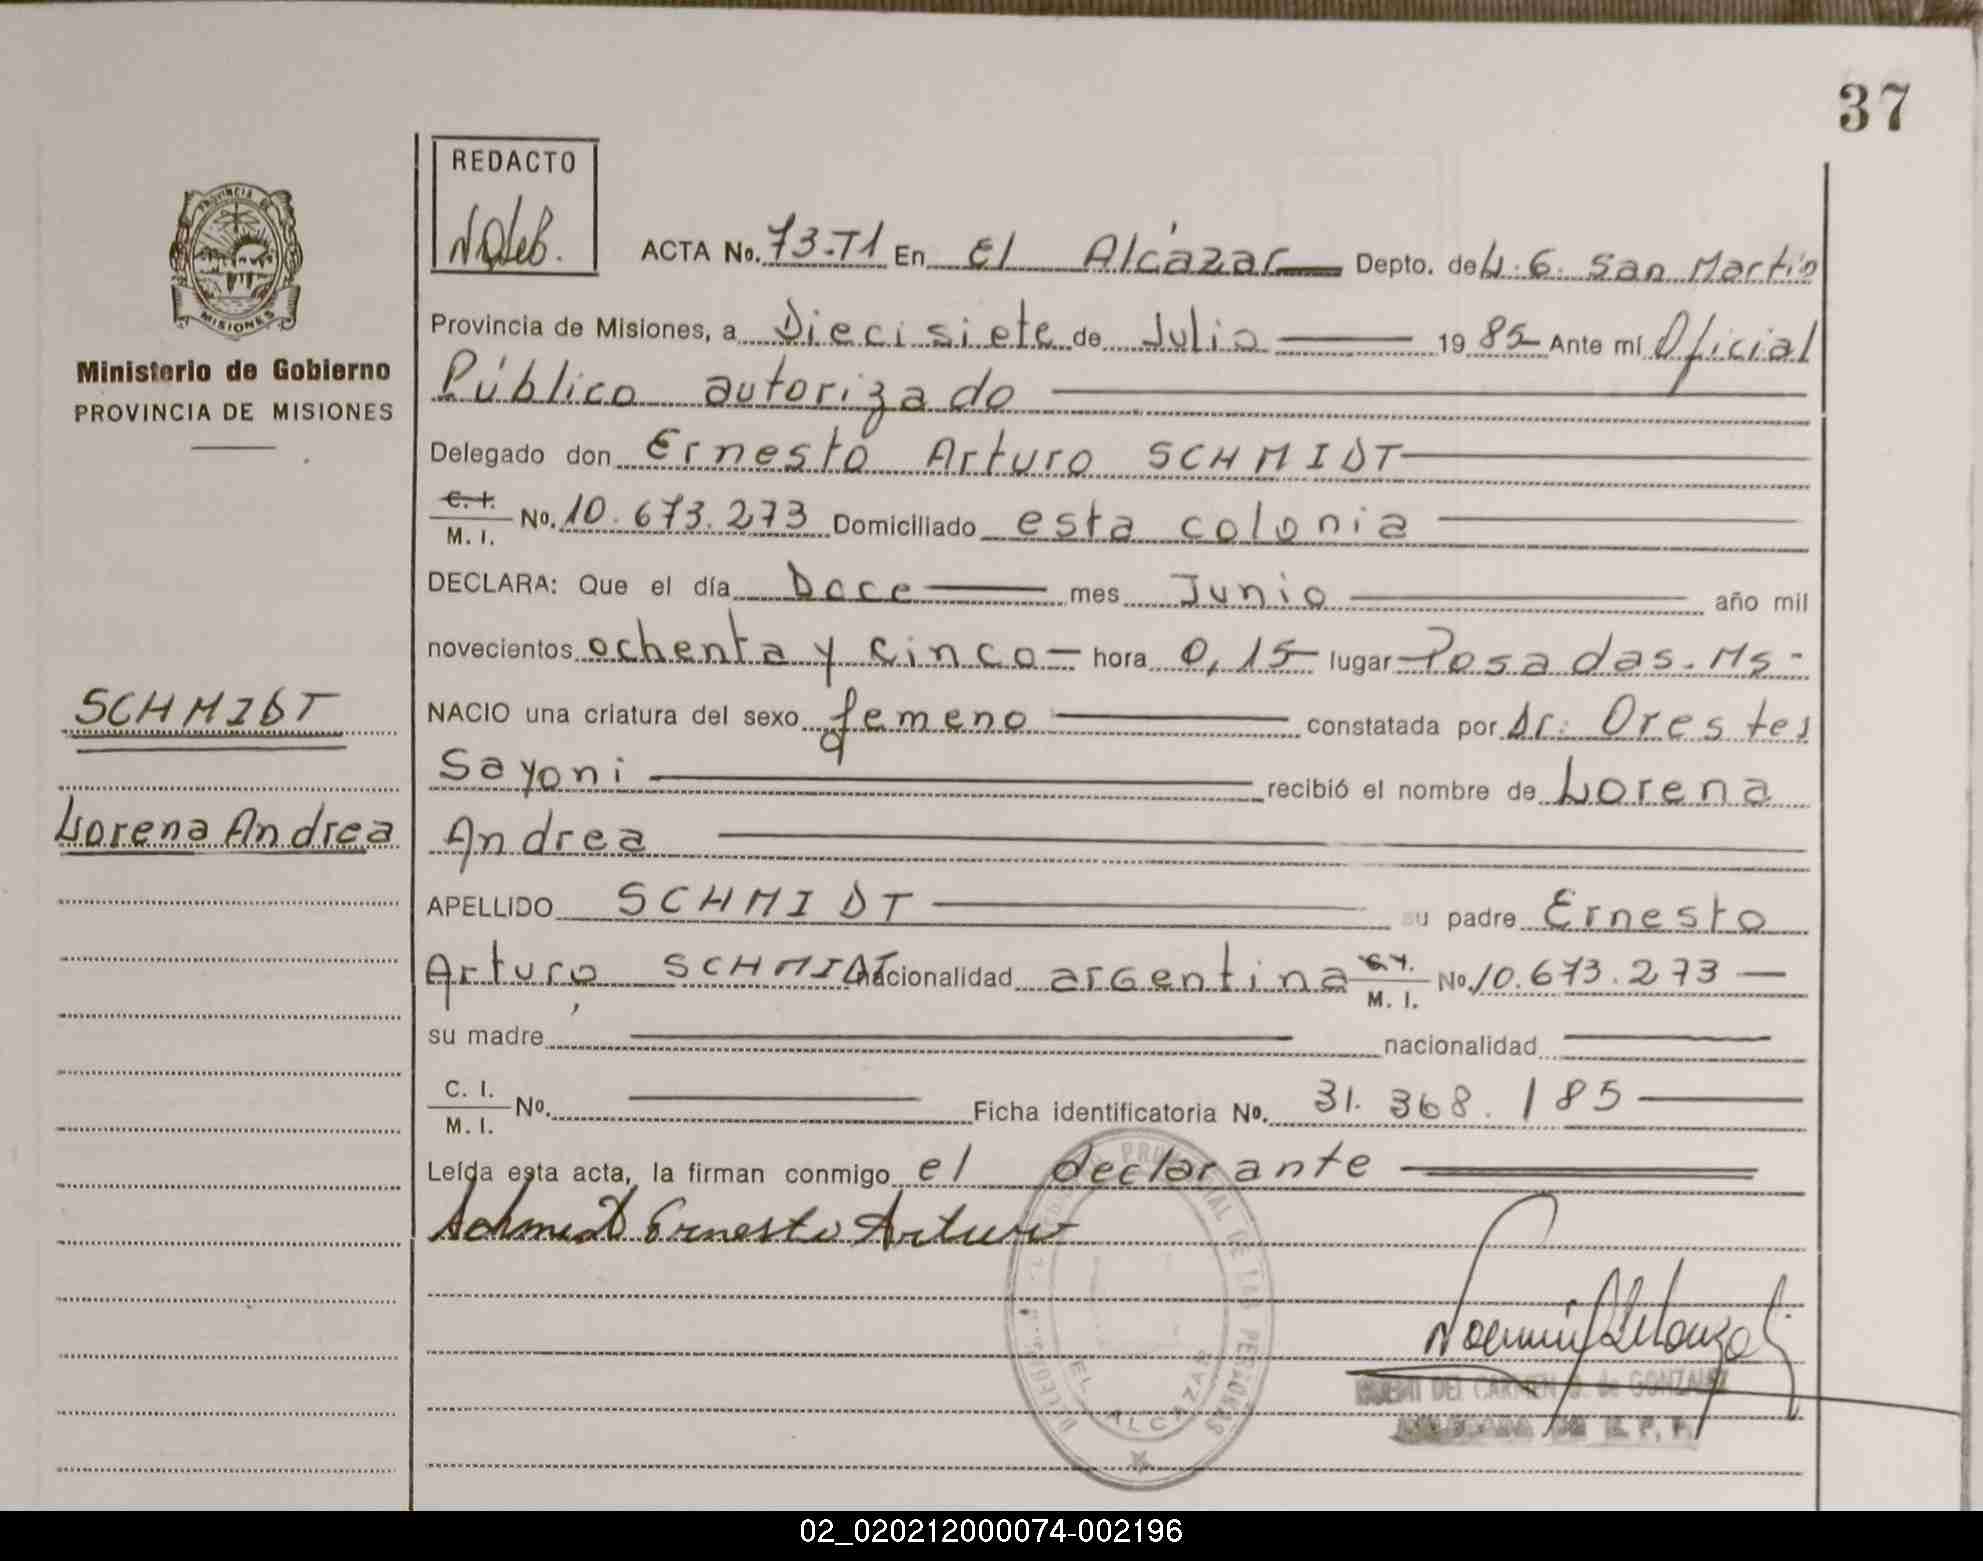 37
REDACTO
ACTA No. 73-T1 En El Alcázar Depto. de L. G. San Martin
Provincia de Misiones, a Diecisiete de Julio 1985 Ante mí Oficial
Público autorizado
Delegado don Ernesto Arturo SCHMIDT
C. I.
M. I. No. 10.673.273 Domiciliado esta colonia
DECLARA: Que el día Doce mes Junio año mil
novecientos ochenta y cinco hora 0,15 lugar Posadas. Ms-
NACIO una criatura del sexo femeno constatada por Dr. Orestes
Sayoni recibió el nombre de Lorena
Andrea
APELLIDO SCHMIDT su padre Ernesto
Arturo SCHMIDT nacionalidad argentina C. I. M. I. No. 10.673.273
su madre nacionalidad
C. I.
M. I. No. Ficha identificatoria No. 31.368.185
Leída esta acta, la firman conmigo el declarante
Schmidt Ernesto Arturo
PROVINCIAL DE LAS PERSONAS
EL ALCAZAR
DEL CARMEN de GONZALEZ
PROVINCIA DE
MISIONES
Ministerio de Gobierno
PROVINCIA DE MISIONES
SCHMIDT
Lorena Andrea
02_020212000074-002196